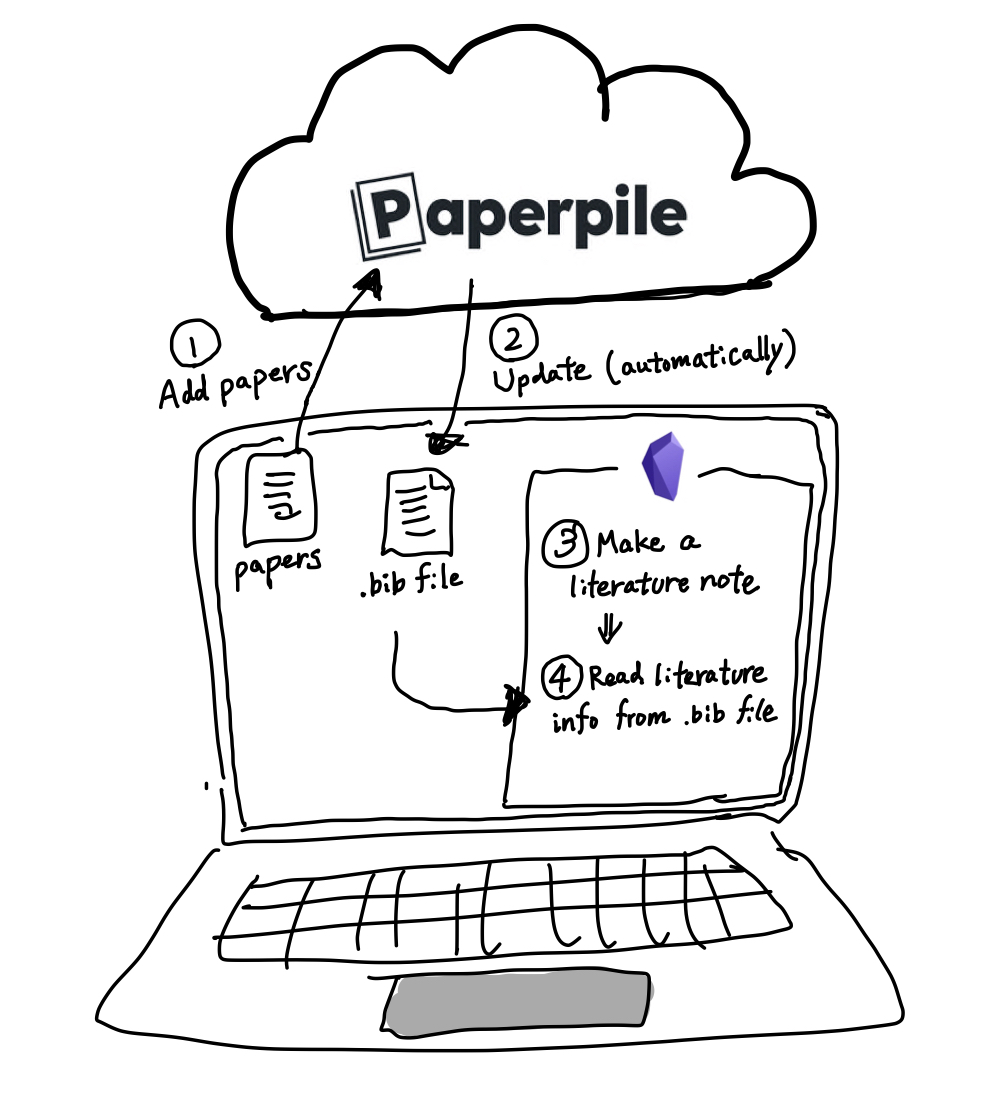 Paperpile
1
Add papers
2
Update (automatically)
papers
.bib file
3 Make a
literature note
⇓
4 Read literature
info from .bib file